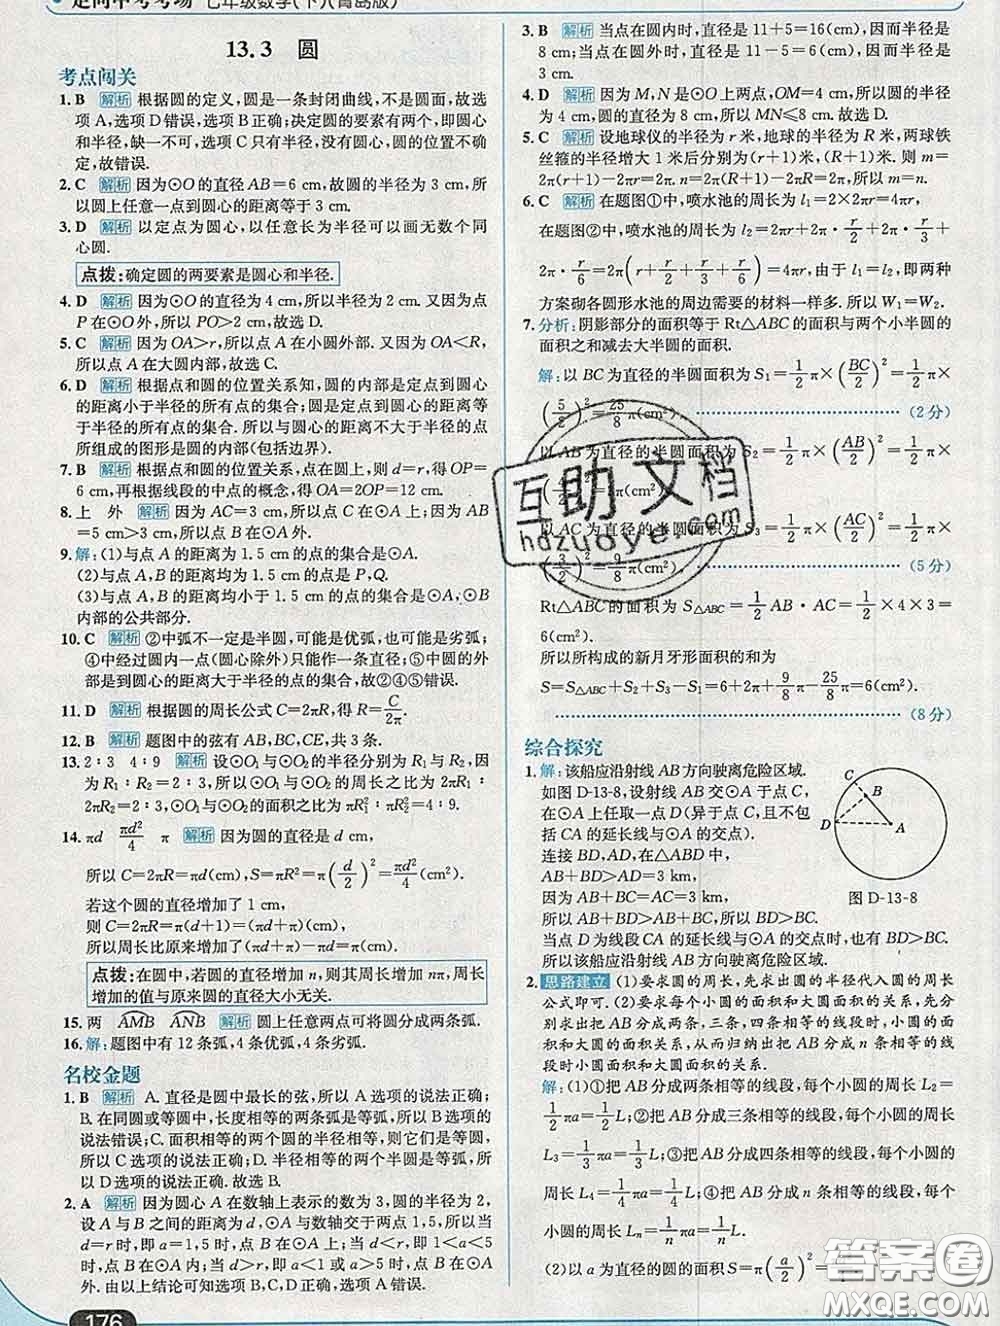 走向中考考场 七年级数学(下)(青岛版)
13.3 圆
考点闯关
1. B 解析 根据圆的定义,圆是一条封闭曲线,不是圆面,故选
项A,选项D错误,选项B正确;决定圆的要素有两个,即圆心
和半径,缺一不可,选项C只有半径,没有圆心,圆的位置不确
定,故错误.
2. C 解析 因为⊙O的直径AB=6 cm,故圆的半径为3 cm,所
以圆上任意一点到圆心的距离等于3 cm.
3. D 解析 以定点为圆心,以任意长为半径可以画无数个同
心圆.
点拨:确定圆的两要素是圆心和半径.
4. D 解析 因为⊙O的直径为4 cm,所以半径为2 cm.又因为点
P在⊙O外,所以PO>2 cm,故选D.
5. C 解析 因为OA>r,所以点A在小圆外部.又因为OA<R,
所以点A在大圆内部,故选C.
6. D 解析 根据点和圆的位置关系知,圆的内部是定点到圆心
的距离小于半径的所有点的集合;圆是定点到圆心的距离等
于半径的所有点的集合.所以与圆心的距离不大于半径的点
所组成的图形是圆的内部(包括边界).
7. B 解析 根据点和圆的位置关系,点在圆上,则d=r,得OP=
6 cm,再根据线段的中点的概念,得OA=2OP=12 cm.
8. 上 外 解析 因为AC=3 cm,所以点C在⊙A上;因为AB
=5 cm>3 cm,所以点B在⊙A外.
9. 解:(1)与点A的距离为1.5 cm的点的集合是⊙A.
(2)与点A,B的距离均为1.5 cm的点是P,Q.
(3)与点A,B的距离均小于1.5 cm的点的集合是⊙A,⊙B
内部的公共部分.
10. C 解析 ②中弧不一定是半圆,可能是优弧,也可能是劣弧;
④中经过圆内一点(圆心除外)只能作一条直径;⑤中圆的外
部是到圆心的距离大于半径的点的集合,故②④⑤错误.
11. D 解析 根据圆的周长公式C=2πR,得R=C/2π.
12. B 解析 题图中的弦有AB,BC,CE,共3条.
13. 2∶3 4∶9 解析 设⊙O₁与⊙O₂的半径分别为R₁与R₂,因
为R₁∶R₂=2∶3,所以⊙O₁与⊙O₂的周长之比为2πR₁∶
2πR₂=2∶3,⊙O₁与⊙O₂的面积之比为πR₁²∶πR₂²=4∶9.
14. πd πd²/4 π 解析 因为圆的直径是d cm,
所以C=2πR=πd(cm),S=πR²=π(d/2)²=πd²/4(cm²).
若这个圆的直径增加了1 cm,
则C=2πR=π(d+1)=(πd+π)(cm),
所以周长比原来增加了(πd+π)-πd=π(cm).
点拨:在圆中,若圆的直径增加n,则其周长增加nπ,周长
增加的值与原来圆的直径大小无关.
15. 两 AMB ANB 解析 圆上任意两点可将圆分成两条弧.
16. 解:题图中有12条弧,4条优弧,4条劣弧.
名校金题
1. B 解析 A.直径是圆中最长的弦,所以A选项的说法正确;
B.在同圆或等圆中,长度相等的两条弧是等弧,所以B选项的
说法错误;C.面积相等的两个圆的半径相等,则它们是等圆,
所以C选项的说法正确;D.半径相等的两个半圆是等弧,所
以D选项的说法正确.故选B.
2. A 解析 因为圆心A在数轴上表示的数为3,圆的半径为2,
设A与B之间的距离为d,⊙A与数轴交于两点1,5,所以当
d=r时,即a=1,5时,点B在⊙A上;当d<r时,即1<a<5
时,点B在⊙A内;当d>r时,即a<1或a>5时,点B在⊙A
外.由以上结论可知选项B,C,D正确,选项A错误.
176
3. B 解析 当点在圆内时,直径是11+5=16(cm),因而半径是
8 cm;当点在圆外时,直径是11-5=6(cm),因而半径是
3 cm.故选B.
4. D 解析 因为M,N是⊙O上两点,OM=4 cm,所以圆的半径
为4 cm,圆的直径为8 cm,所以MN≤8 cm.故选D.
5. C 解析 设地球仪的半径为r米,地球的半径为R米,两球铁
丝箍的半径增大1米后分别为(r+1)米,(R+1)米.则m=
2π(r+1)-2πr=2π.n=2π(R+1)-2πR=2π,所以m=n.
6. C 解析 在题图①中,喷水池的周长为l₁=2×2πr=4πr,
在题图②中,喷水池的周长为l₂=2πr+2π·r/2+2π·r/3+
2π·r/6=2π(r+r/2+r/3+r/6)=4πr,由于l₁=l₂,即两种
方案砌各圆形水池的周边需要的材料一样多.所以W₁=W₂.
7. 分析:阴影部分的面积等于Rt△ABC的面积与两个小半圆的
面积之和减去大半圆的面积.
解:以BC为直径的半圆面积为S₁=1/2π×(BC/2)²=1/2π×
(5/2)²=25/8π(cm²). (2分)
以AB为直径的半圆面积为S₂=1/2π×(AB/2)²=1/2π×
π(cm²).
以AC为直径的半圆面积为S₃=1/2π×(AC/2)²=1/2π×
(3/2)²=9/8π(cm²). (5分)
Rt△ABC的面积为S△ABC=1/2AB·AC=1/2×4×3=
6(cm²).
所以所构成的新月牙形面积的和为
S=S△ABC+S₂+S₃-S₁=6+2π+9/8π-25/8π=6(cm²).
(8分)
综合探究
1. 解:该船应沿射线AB方向驶离危险区域.
如图D-13-8,设射线AB交⊙A于点C,
在⊙A上任取一点D(异于点C,且不包
括CA的延长线与⊙A的交点).
连接BD,AD,在△ABD中,
AB+BD>AD=3 km,
因为AB+BC=AC=3 km,
所以AB+BD>AB+BC,所以BD>BC.
当点D为线段CA的延长线与⊙A的交点时,也有BD>BC.
所以该船应沿射线AB方向驶离危险区域.
C
B
D
A
图D-13-8
2. 思路建立 (1)要求圆的周长,先求出圆的半径代入圆的周长
公式即可.(2)要求每个小圆的面积和大圆面积的关系,先分
别求出把AB分成两条,三条,四条相等的线段时,小圆面积
和大圆面积的关系,从而归纳出把AB分成n条相等的线
段时小圆面积和大圆面积的关系.
解:(1)①把AB分成两条相等的线段,每个小圆的周长L₂=
1/2πa=1/2L;②把AB分成三条相等的线段,每个小圆的周长
L₃=1/3πa=1/3L;③把AB分成四条相等的线段,每个小圆的周
长L₄=1/4πa=1/4L;④把AB分成n条相等的线段,每个
小圆的周长Lₙ=1/nπa=1/nL.
(2)以a为直径的圆的面积S=π(a/2)²=
互助文档
hdzuoye.com
答案圈
MXQE.COM